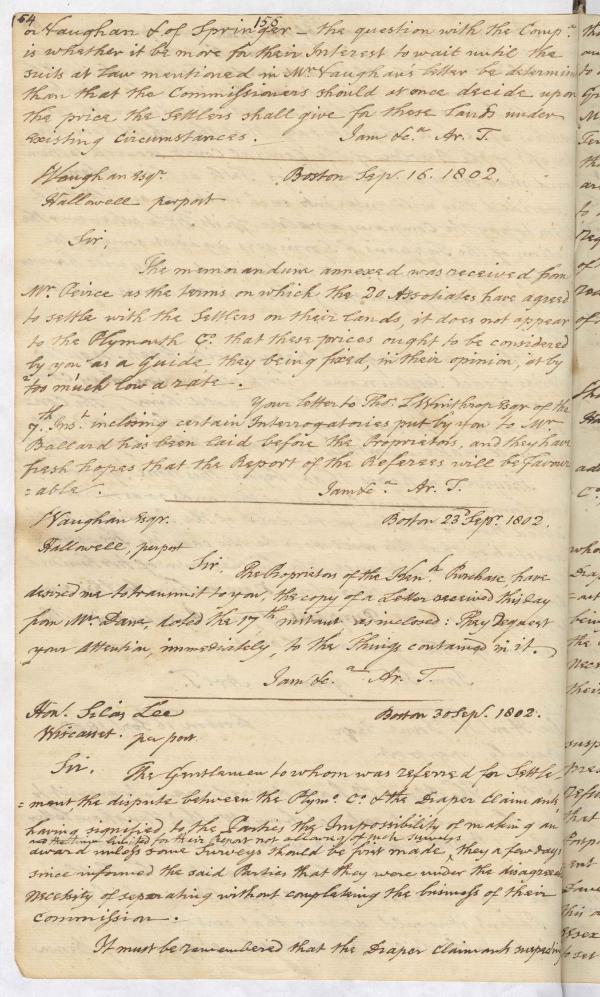 54 156
or Vaughan & of Springer – the question with the Compa.
is whether it be more for their Interest to wait until the
suits at Law mentioned in Mr. Vaughan's letter be determin
than that the Commissioners should at once decide upon
the price the Settlers shall give for these Lands under
existing circumstances. I am &c.a Ar. T.
Vaughan Esqr. Boston Sepr. 16. 1802.
Hallowell per post
Sir,
The memorandum annexed was received from
Mr. Peirce as the terms on which the 20 Assotiates have agreed
to settle with the Settlers on their lands, it does not appear
to the Plymouth Co. that these prices ought to be considered
by you as a Guide, they being fixed, in their opinion, at by
too much low a rate.
Your letter to Thos. L Winthrop Esqr of the
7th Inst. inclosing certain Interrogatories put by you to Mr
Ballard has been laid before the Proprietors, and they have
fresh hopes that the Report of the Referees will be favour
=able. I am &c.a Ar. T.
Vaughan Esqr. Boston 23d Sepr. 1802.
Hallowell, per post
Sir, The Proprietors of the Kenk. Purchase have
desired me to transmit to you, the copy of a Letter received this day
from Mr. Dane, dated the 17th instant as inclosed: They Request
your attention, immediately, to the Things contained in it.
I am &c.a Ar. T.
Honl. Silas Lee Boston 30 Sepr. 1802.
Wiscasset. per post
Sir, The Gentlemen to whom was referred for Settle
=ment the dispute between the Plymo. Co. & the Draper Claimants,
having signified to the Parties the Impossibility of making an
as the time limited for their Report not allowing of such Surveys
award unless some Surveys should be first made, they a few days
since informed the said Parties that they were under the disagreea
necessity of separating without compleating the business of their
Commission.
It must be remembered that the Draper Claimants suspecting